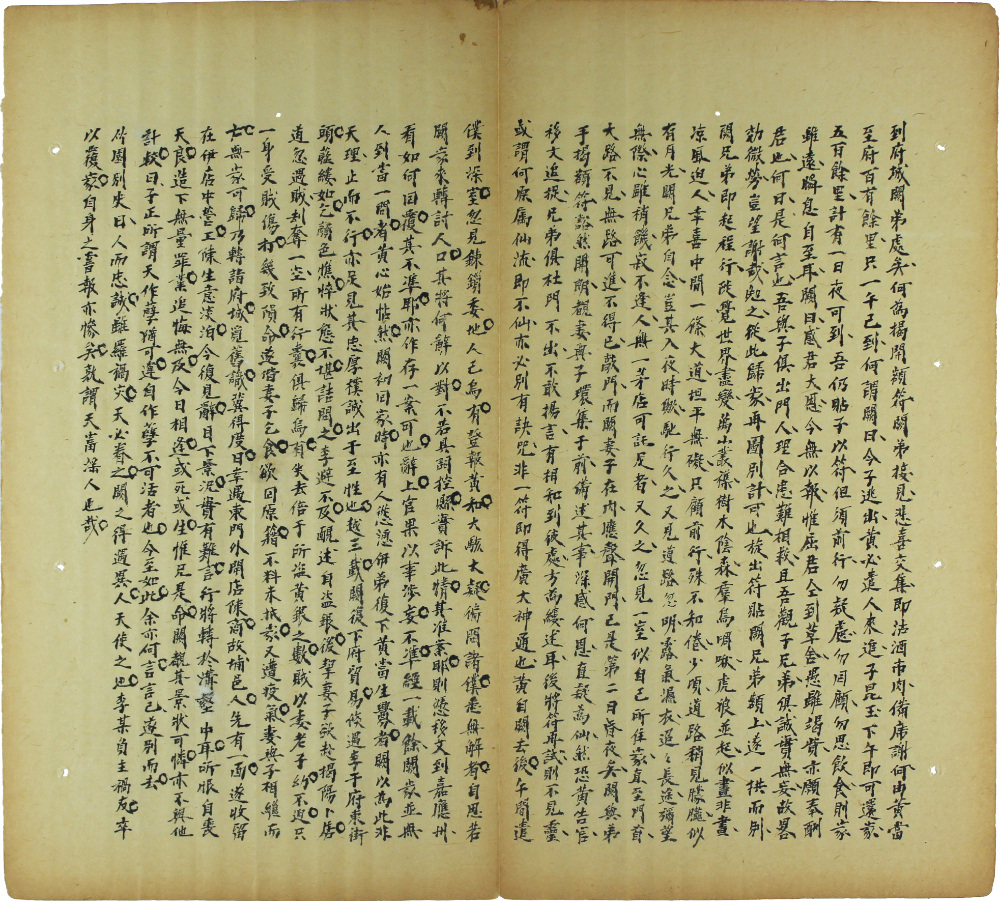 到府城關弟處矣何為揭開額符關弟接見悲喜交集即沽酒市肉備席謝何由黃當
至府百有餘里只一午已到何謂關曰今子逃出黃必遣人來追子是玉下午即可還家
五百餘里計有一日夜可到吾仍貼子以符但須前行勿疑慮勿回顧勿思飲食則家
雖遠瞬息自至耳關曰感君大恩今無以報惟屈君仝到草舍愚雖竭貲亦願奉酬
君也何曰是何言也吾與子俱出門人理合患難相救且吾觀子兄弟俱誠實無妄故畧
効微勞豈望謝哉勉之從此歸家再圖別計可也旋出符貼關兄弟額上遂一拱而別
關兄弟即起程行陡覺世界盡變為小叢樑樹木陰森羣鳥啁啾虎狼並起似畫非畫
涼風迫人幸喜中間一條大道坦平無礙只顧前行殊不知倦少頃道路稍見朦朧似
有月光關兄弟自念豈其入夜時纔馳行久之又見道路忽明露氣濕衣迢々長途彌望
無際心雖稍饑寂不逢人無一茅店可託足者又久之忽見一室似自己所住家直至門首
大路不見無路可進不得已敲門而關妻子在内應聲開門已是第二日昏夜矣關與弟
手揭額符豁然開朗覩妻與子環集于前備述其事深感何恩直疑為仙然恐黃告官
移文追捉兄弟俱杜門不出不敢揚言有相知到彼處方為縷述耳後將符再試則不見靈
或謂何原屬仙流即不仙亦必別有訣咒非一符即得廣大神通也黃自關去後午間遣
僕到深室忽見鍊鎖委地人已烏有登報黃和大駭大疑徧問諸僕悉無解者自思若
關家來轉討人口其將何辭以對不若具詞控縣實訴此情其准案耶則憑移文到嘉應州
看如何回覆其不準耶亦作存一案可也辭上官果以事涉妄不准經一載餘關家並無
人到當一問者黃心始恬然關初回家時亦有人慫慂伊弟復下黃當生釁者關以為此非
天理止而不行亦足見其忠厚樸誠出于至性也越三載關復下府貿易條遇李于府東街
頭藍縷如乞顏色憔悴狀態不堪詰問之李避不及靦述自盜銀後挈妻子欲赴揭陽下居
道忽遇賊刦奪一空所有行囊俱歸烏有失去倍于所盜黃銀之數賊以妻老子幼不過只
一身受賊傷刃幾致殞命遂偕妻子乞食欲回原籍不料未抵家又遭疫氣妻與子相繼而
亡無家可歸乃轉詣府城尋舊識冀得度日幸遇東門外開店條商故埔邑人先有一面遂收留
在伊店中暫工條生意淡泊今復見辭目下景況實有難言行將轉於溝壑中耳所恨自喪
天良造下無量罪業追悔無及今日相逢或死或生惟兄是命關覩其景狀可憐亦不與他
計較曰子正所謂天作孽猶可違自作孽不可活者也今至如此余亦何言言已遂別而去
外聞別史曰人而忠誠雖羅禍灾天必眷之關之得遇異人天使之也李某負主禍友幸
以覆家自身之害報亦慘矣孰謂天高深人也哉